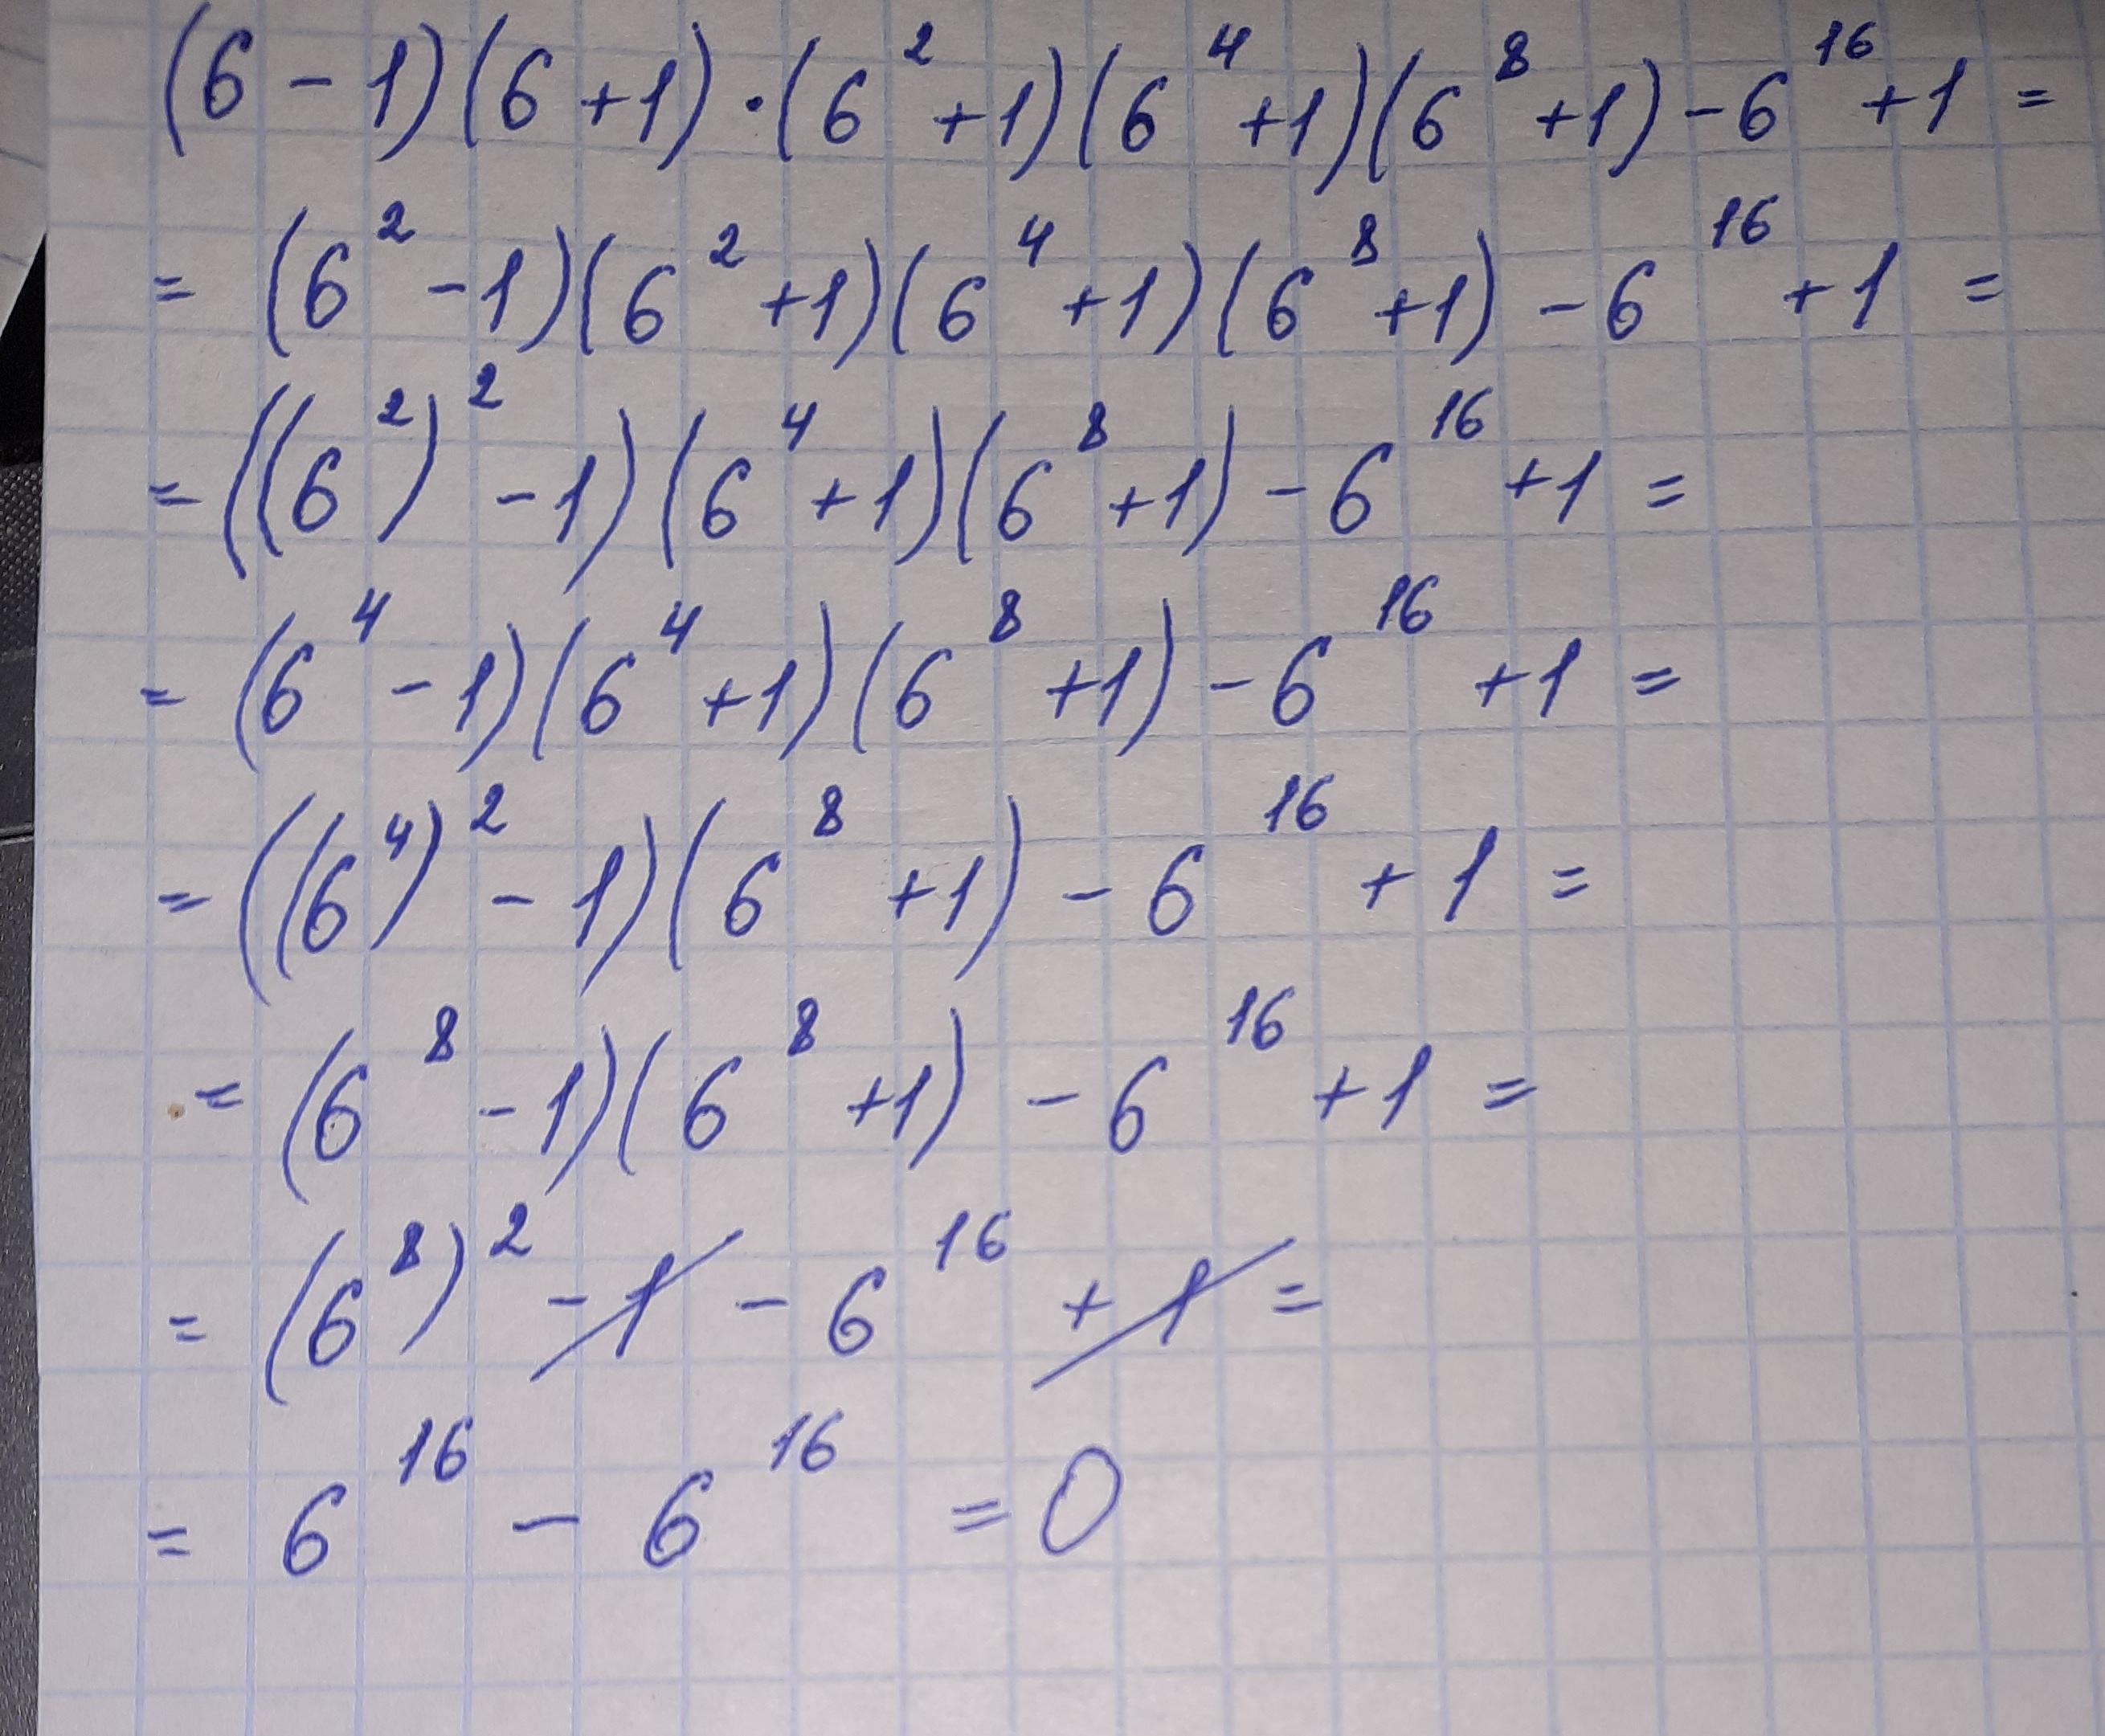 (6 - 1)(6 + 1) · (6² + 1)(6⁴ + 1)(6⁸ + 1) - 6¹⁶ + 1 =
= (6² - 1)(6² + 1)(6⁴ + 1)(6⁸ + 1) - 6¹⁶ + 1 =
= ((6²)² - 1)(6⁴ + 1)(6⁸ + 1) - 6¹⁶ + 1 =
= (6⁴ - 1)(6⁴ + 1)(6⁸ + 1) - 6¹⁶ + 1 =
= ((6⁴)² - 1)(6⁸ + 1) - 6¹⁶ + 1 =
= (6⁸ - 1)(6⁸ + 1) - 6¹⁶ + 1 =
= (6⁸)² - 1 - 6¹⁶ + 1 =
= 6¹⁶ - 6¹⁶ = 0